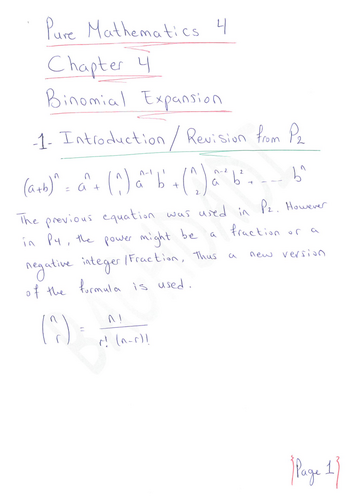 Pure Mathematics 4
Chapter 4
Binomial Expansion
-1- Introduction / Revision from P₂
(a+b)ⁿ = aⁿ + (n 1) aⁿ⁻¹ b¹ + (n 2) aⁿ⁻² b² + ---- bⁿ
The previous equation was used in P₂. However
in P4, the power might be a fraction or a
negative integer/fraction, Thus a new version
of the formula is used.
(n r) = n! / r! (n-r)!
Page 1